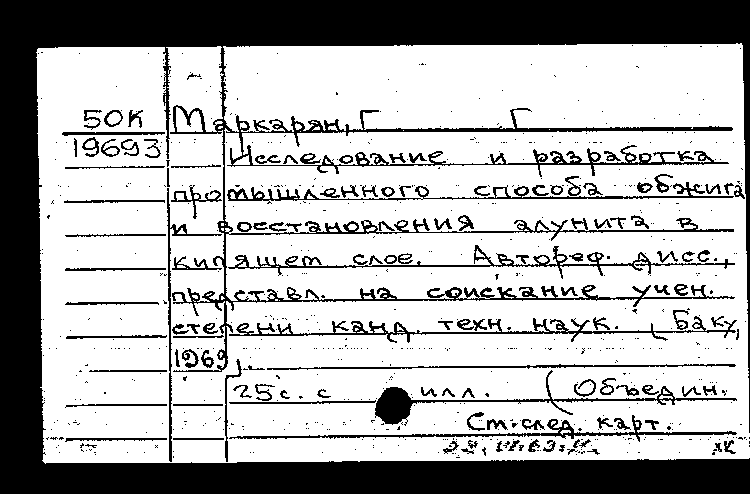 50К Маркарян, Г Г
19693 Исследование и разработка
промышленного способа обжига
и восстановления алунита в
кипящем слое. Автореф. дисс.,
представл. на соискание учен.
степени канд. техн. наук. [Баку,
1969].
25 с. с илл. (Объедин.
См. след. карт.
ЖК